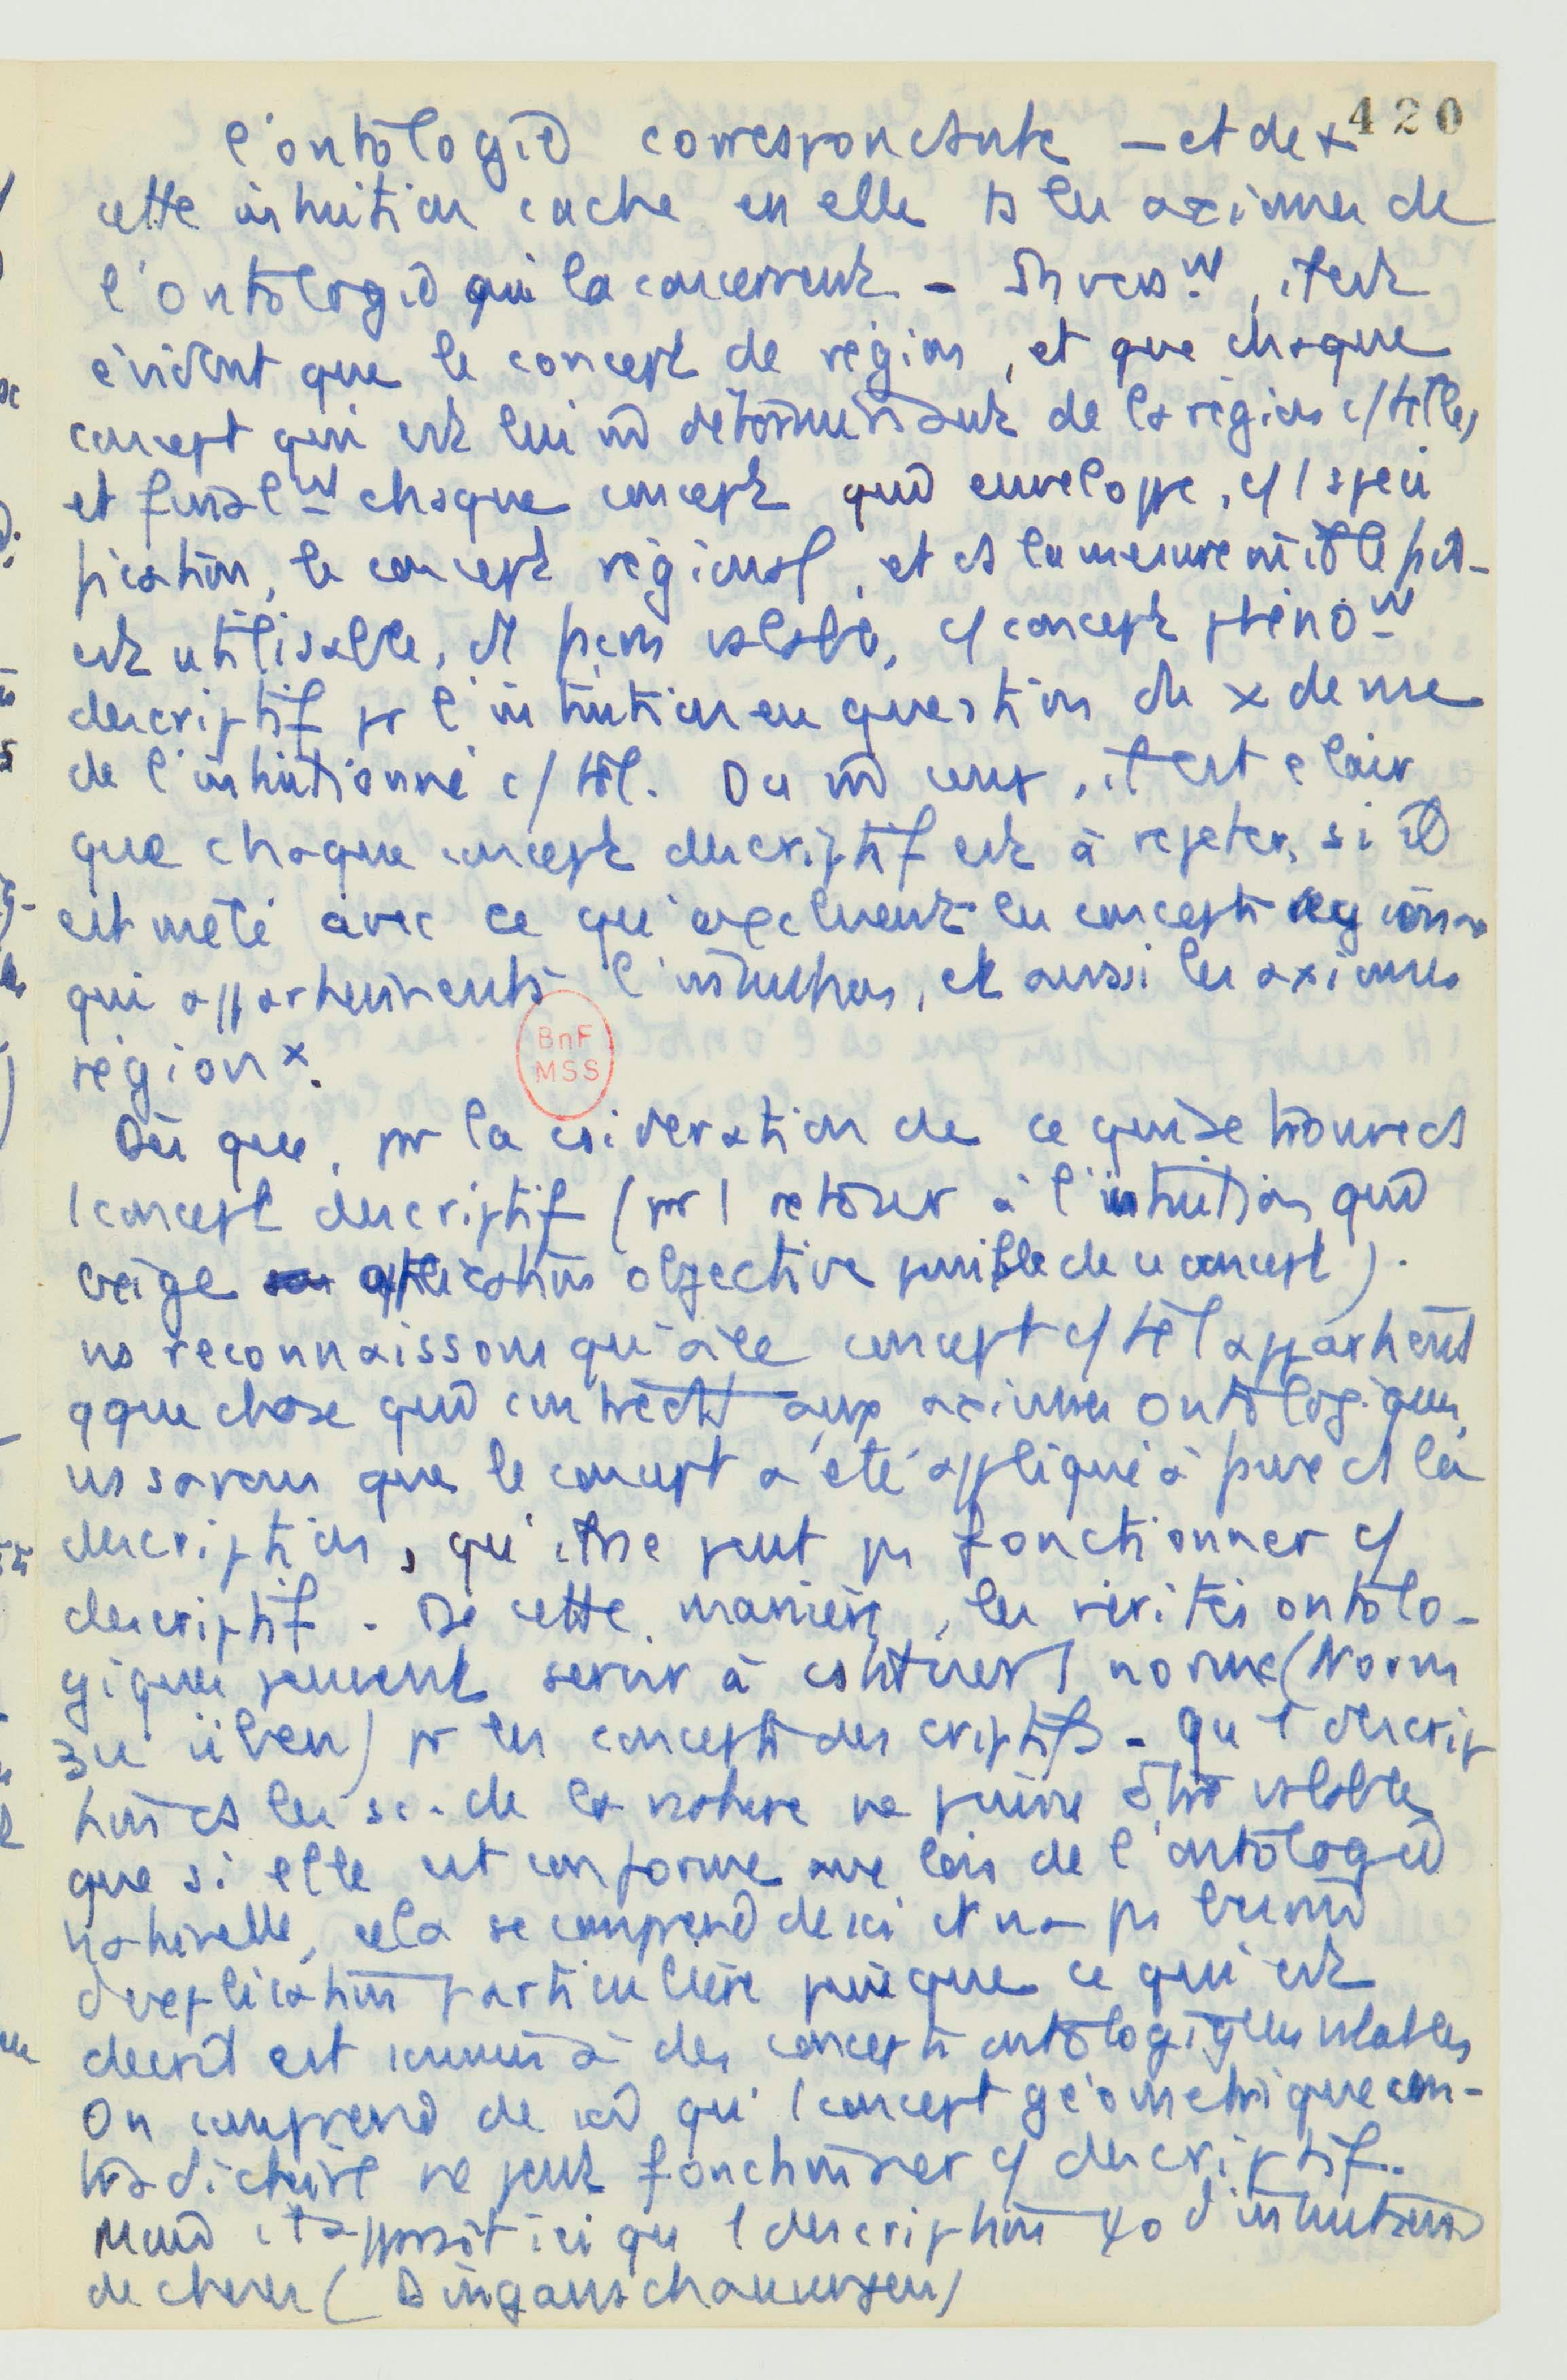 420
l'ontologie correspondante - et de +
cette intuition cache en elle ts les axiomes de
l'ontologie qui la concernent - Invers^nt, il est
évident que le concept de région, et que chaque
concept qui est lui m̂ déterminant de la région c/ telle,
et final^nt chaque concept qui enveloppe, c/ 1 spéci
fication, le concept régional, et ds la mesure où il le fait
est utilisable, et peut valable, c/ concept phéno^nt
descriptif pr l'intuition en question du x de vue
de l'intuitionné c/ tel. Du m̂ coup, il est clair
que chaque concept descriptif est à rejeter, si il
est mêlé avec ce qu'excluent les concepts régionx
qui appartiennent à l'intuition, et aussi les axiomes
régionx.
BnF
MSS
Dès que, pr la csidération de ce qui se trouve ds
1 concept descriptif (pr 1 retour à l'intuition qui
exige application objective possible de ce concept).
ns reconnaissons qu'à ce concept c/ tel appartient
qque chose qui contredit aux axiomes ontologiques,
ns savons que le concept a été appliqué à faux ds la
description, qu'il ne peut ps fonctionner c/
descriptif. De cette manière, les vérités ontolo-
giques peuvent servir à cstituer 1 norme (Norm
zu üben) pr les concepts descriptifs - Qu'1 descrip
tion ds les sc. de la nature ne puisse être valable
que si elle est conforme aux lois de l'ontologie
naturelle, cela se comprend de soi et n'a ps besoin
d'explication particulière puisque ce qui est
décrit est soumis à des concepts ontologiques valables
On comprend de soi qu'1 concept géométrique con-
tradictoire ne peut fonctionner c/ descriptif.
Mais il apparaît ici que 1 description d'intuitions
de choses (Dinganschauungen)